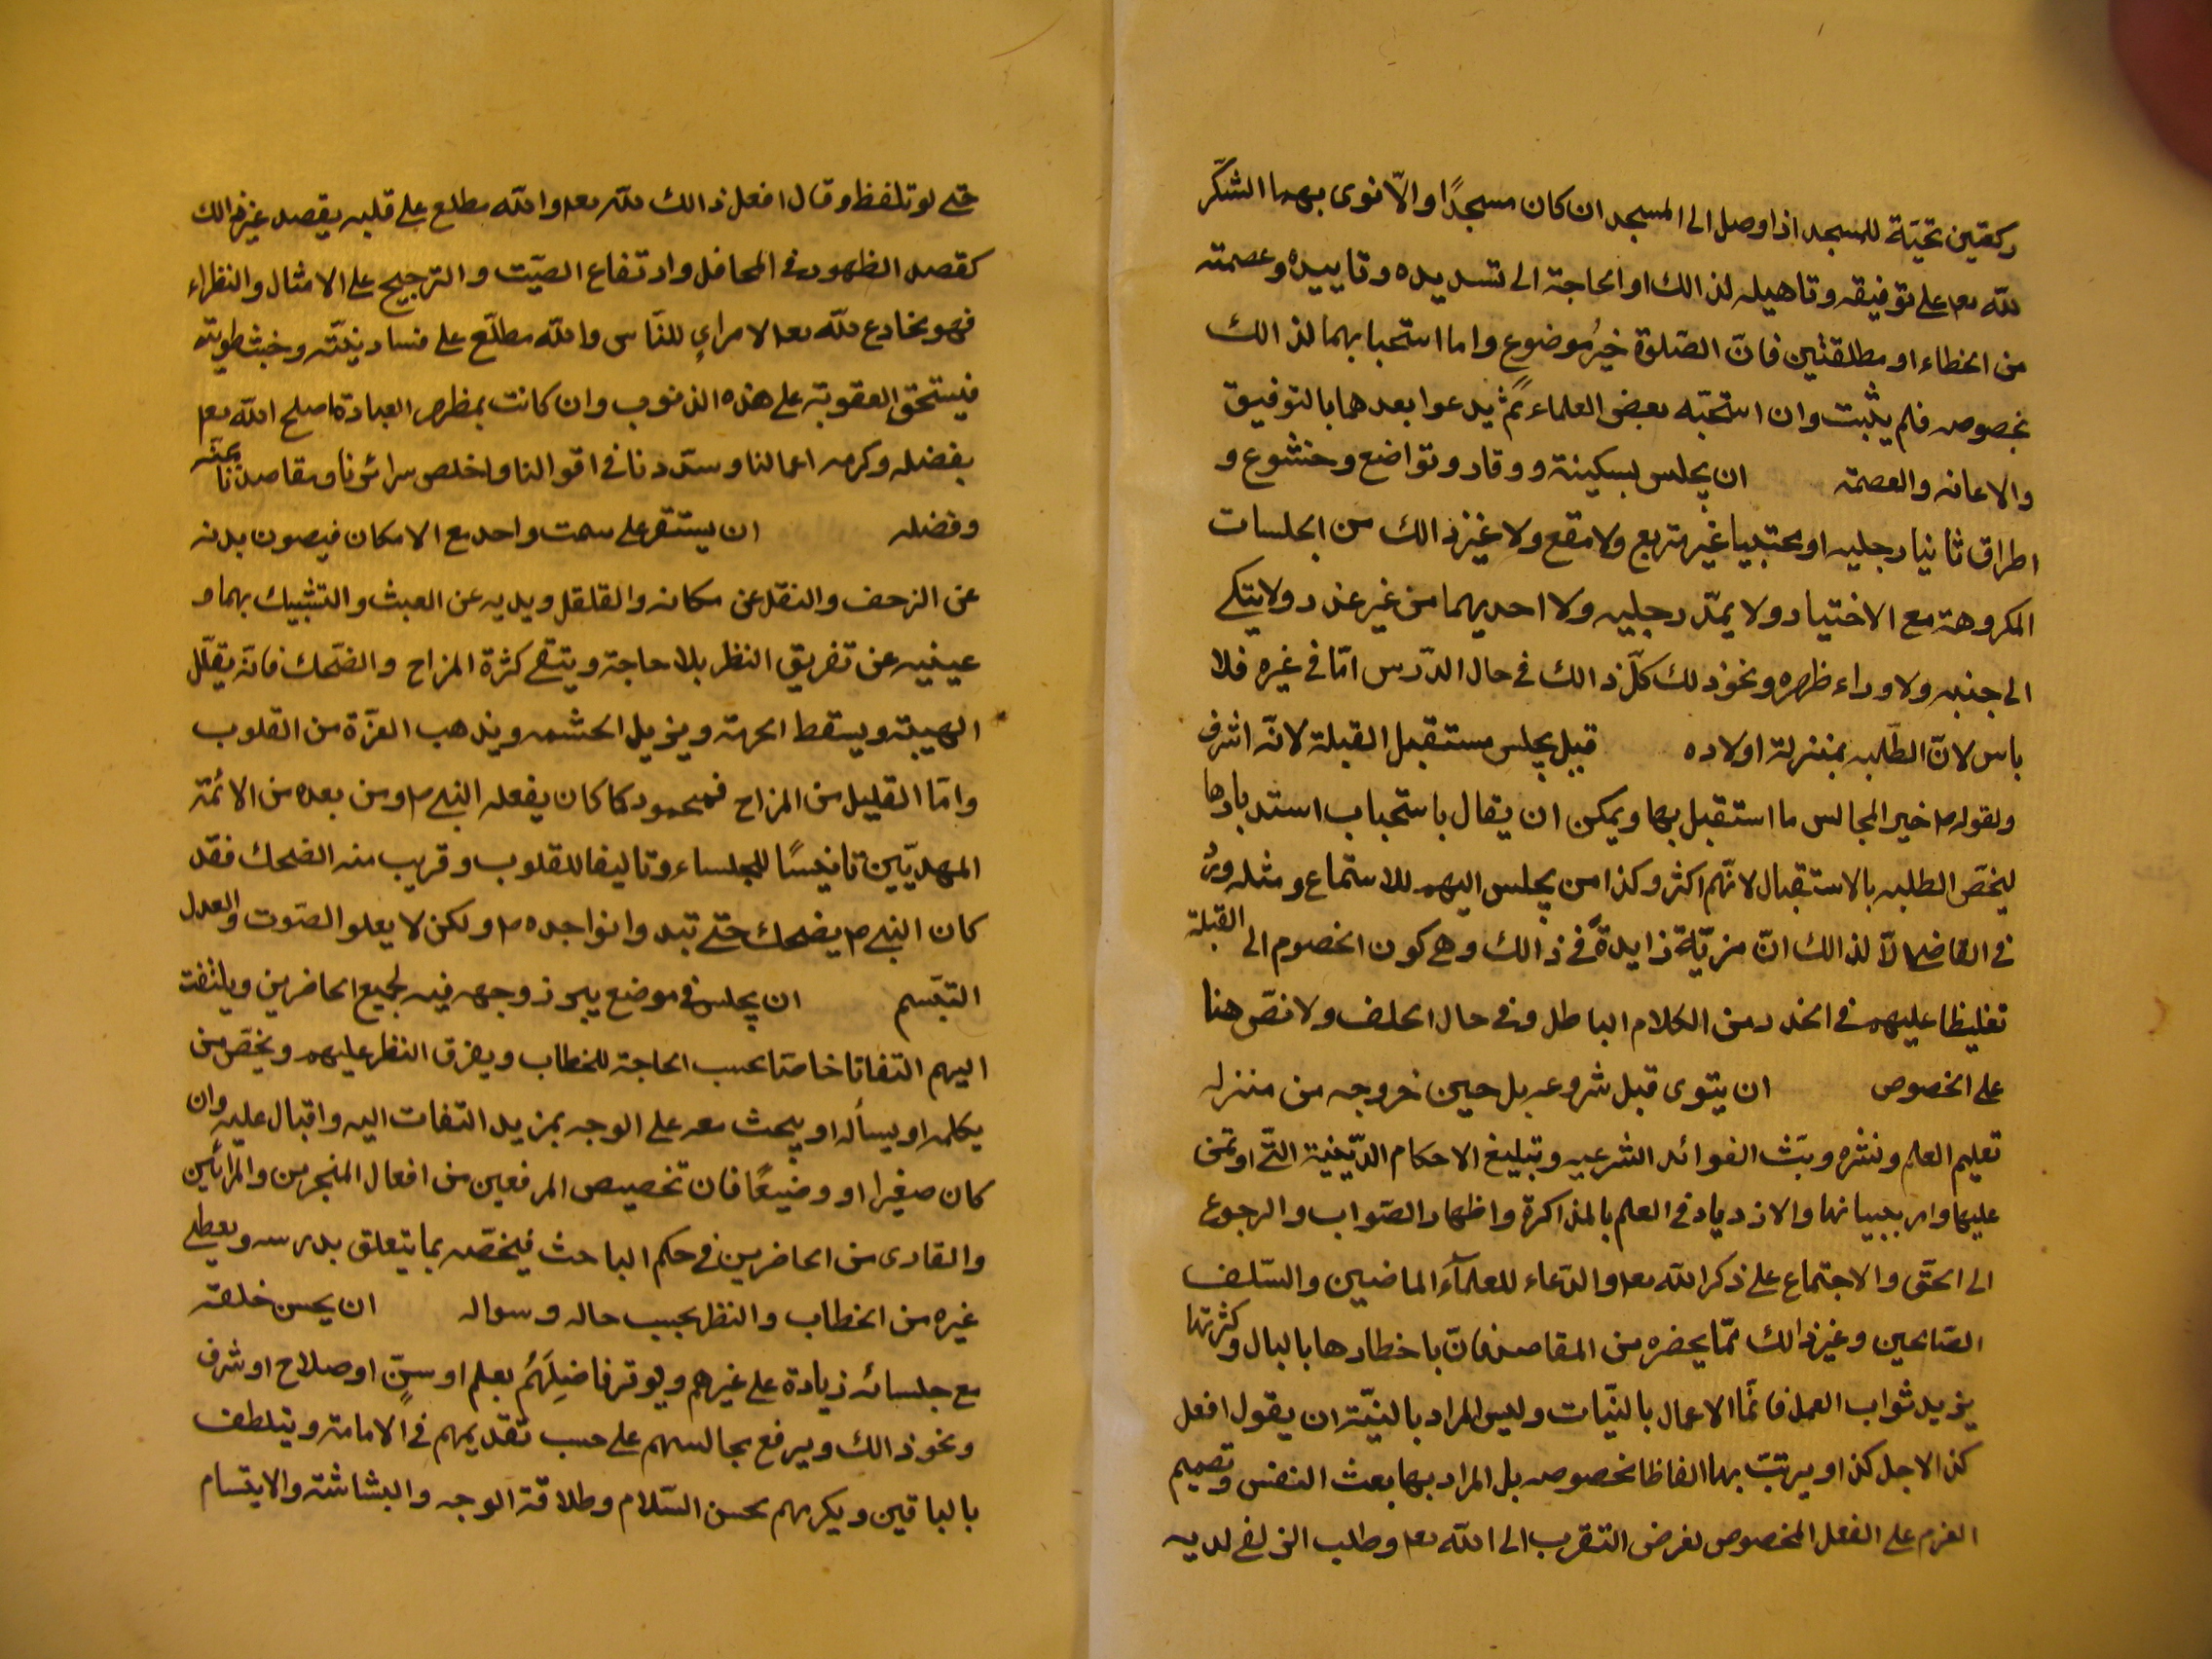 ركعتين تحيّة للمسجد اذا وصل الى المسجد ان كان مسجدًا والّا نوى بهما الشكر
لله تعم على توفيقه وتاهيله لذالك او الحاجة الى تسديده وتاييده وعصمته
من الخطاء او مطلقتين فانّ الصّلوة خيرُ موضوع واما استحبابهما لذالك
بخصوصه فلم يثبت وان استحبّه بعض العلماء ثمّ يدعوا بعدهما بالتوفيق
والاعانه والعصمة ان يجلس بسكينة ووقار وتواضع وخشوع و
اطراق ثانيا رجليه او محتبيا غير متربع ولا مقع ولا غيز ذالك من الجلسات
المكروهة مع الاختيار ولا يمدّ رجليه ولا احديهما من غير عذر ولا يتكے
الى جنبه ولا وراء ظهره ونحو ذلك كلّ ذالك في حال الدّرس امّا في غيره فلا
باس لانّ الطّلبه بمنزلة اولاده قيل يجلس مستقبل القبلة لانّه اشرف
ولقوله ص خير المجالس ما استقبل بها ويمكن ان يقال باستحباب استدبارها
ليخصّ الطلبه بالاستقبال لانّهم اكثر وكذا من يجلس اليهم للاستماع ومثله ورد
في القاضي الّا لذالك انّ مزيّة زايدةً في ذالك وهي كون الخصوم الى القبلة
تغليظا عليهم في الخذر من الكلام الباطل وفي حال الحلف ولا نصّ هنا
على الخصوص ان ينوى قبل شروعه بل حين خروجه من منزله
تعليم العلم ونشره وبثّ الفوائد الشرعيه وتبليغ الاحكام الدّينية الّتي اوتمن
عليها وامر ببيانها والازدياد في العلم بالمذاكرة واظهار الصّواب والرجوع
الى الحقّ والاجتماع على ذكر الله تعم والدّعاء للعلمآء الماضيين والسّلف
الصّالحين وغيز ذالك ممّا يحضره من المقاصد فانّ باخطارها بالبال وكثرتها
يزيد ثواب العمل فانّما الاعمال بالنيّات وليس المراد بالنيّة ان يقول افعل
كذا لاجل كذا ويرتبّ بها الفاظا مخصوصه بل المراد بها بعث النفس وتصميم
العزم على الفعل المخصوص لغرض التقرب الى الله تعم وطلب الزلفى لديه
حتى لو تلفظ وقال افعل ذالك لله تعم والله مطلع على قلبه يقصد غيز ذالك
كقصد الظهور في المحافل وارتفاع الصّيت والترجيح على الامثال والنظراء
فهو مخادع لله تعم لا مراي للنّاس والله مطلّع على فساد نيّته وخبث طويته
فيستحقّ العقوبة على هذه الذنوب وان كانت بمظهر العبادة اصلح الله تعم
بفضله وكرمه اعمالنا وسدّدنا في اقوالنا واخلص سرائرنا ومقاصدنا بمنّه
وفضله ان يستقر على سمت واحد مع الامكان فيصون بدنه
عن الزحف والنقل عن مكانه والقلقل ويديه عن العبث والتشبيك بهما و
عينيه عن تفريق النظر بلا حاجة ويتقي كثرة المزاح والضّحك فانّه يقلّل
الهيبة ويسقط الحرمة ويزيل الحشمه ويذهب العزّة من القلوب
وامّا القليل من المزاح فمحمود كما كان يفعله النبي ص ومن بعده من الائمّة
المهديّين تانيسًا للجلساء وتاليفا للقلوب وقريب منه الضحك فقد
كان النبي ص يضحك حتى تبدوا نواجده ص ولكن لا يعلو الصّوت والعدل
التبّسم ان يجلس في موضع يبرز وجهه فيه لجميع الحاضرين ويلتفت
اليهم التفاتا خاصّا بحسب الحاجة للخطاب ويفرق النظر عليهم ويخصّ من
يكلمه او يسأله او يبحث معه على الوجه بمزيد التفات اليه واقبال عليه وان
كان صغيرا او وضيعًا فان تخصيص المرفعين من افعال المتجبرين والمرائين
والقارى من الحاضرين في حكم الباحث فيخصّه بما يتعلق بدرسه ويعطى
غيره من الخطاب والنظر بحسب حاله وسواله ان يحسن خلقه
مع جلسائه زيادة على غيرهم ويوقر فاضِلَهُم بعلم او سنٍّ او صلاح او شرف
ونحو ذالك ويرفع مجالسهم على حسب تقديمهم في الامامة ويتلطف
بالباقين ويكرمهم بحسن السّلام وطلاقة الوجه والبشاشة والابتسام